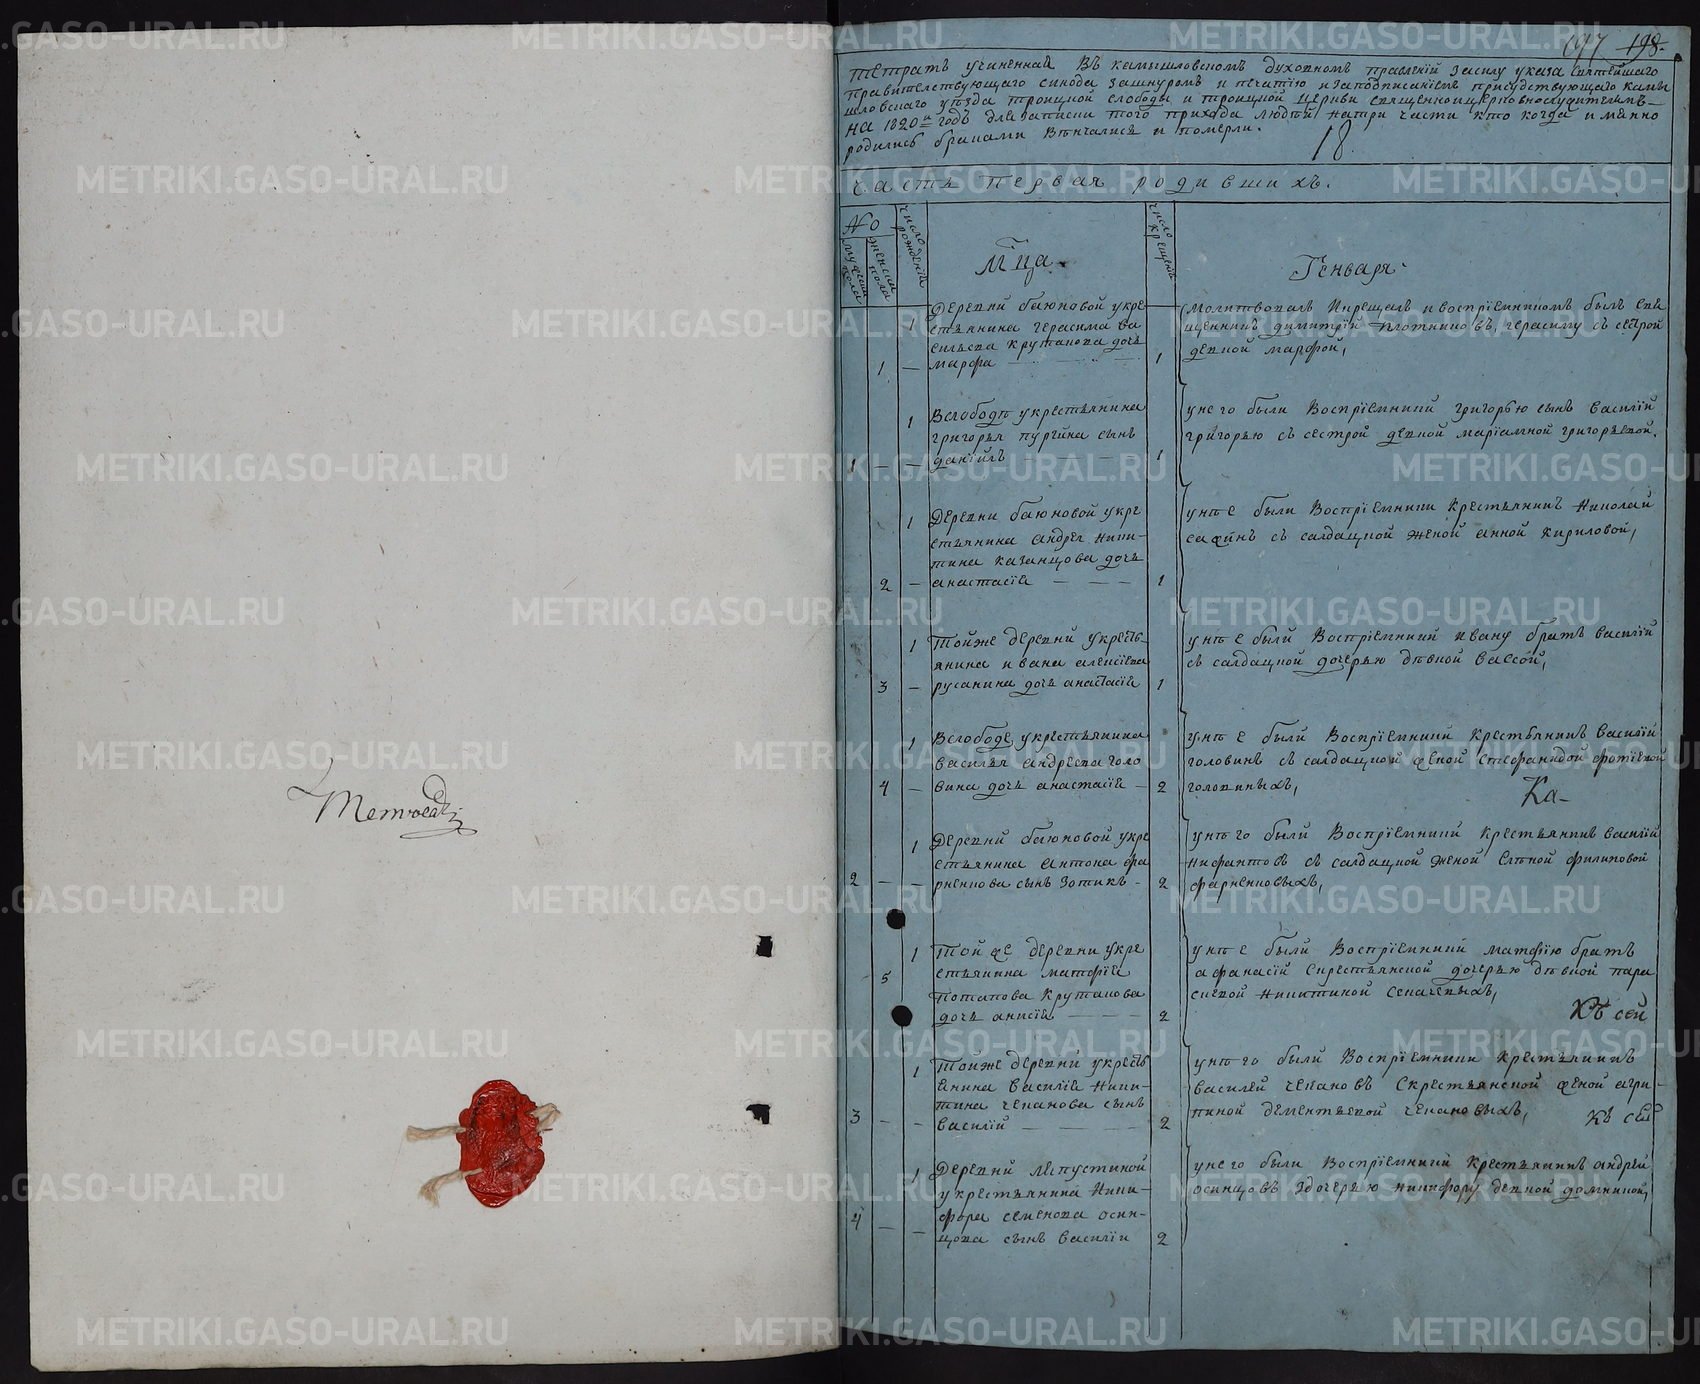 197 198.
тетрать учиненная Въ камышловскомъ духовномъ правленiй засилу указа святейшаго
правителствующаго синода зашнуромъ и печатiю изаподписанiемъ присудствующаго камы
шловскаго уезда троицкой слободы и троицкой церкви священноицерковнослужителямъ
на 1820й годъ для записки того прихода людей натри части кто когда имянно
родились браками венчались и померли.
18
часть первая родившихъ.
№
мужеска пола
женска пола
число рожденiй
Мца
число крещенiй
Генваря
1 Деревни баюновой укре
стьянина герасима ва
сильева крутакова дочь
1 — марфа 1
молитвовалъ Икрещалъ ивоспрiемникомъ былъ свя
щенникъ димитрiй плотниковъ, герасиму съ сестрой
девкой марфой,
1 Вслободе укрестьянина
григорья пургина сынъ
1 — — данiилъ 1
унего были Воспрiемники григорью сынъ василiй
григорью съ сестрой девкой марiамной григорьевой.
1 Деревни баюновой укре
стьянина андрея ники-
тина казанцова дочь
2 — анастасiя 1
унее были Воспрiемники крестьянинъ николай
съ салдацкой женой анной кириловой,
1 тойже деревни укресть
янина ивана алексiева
3 — русакина дочь анастасiя 1
унее были Воспрiемники ивану братъ василiй
съ салдацкой дочерью девкой вассой,
1 Вслободе укрестьянина
василья андреева голо
4 — вина дочь анастасiя — 2
унее были Воспрiемники крестьянинъ василiй
головинъ съ салдацкой женой стефанидой фотiевой
головиныхъ,
Ка-
1 Деревни баюновой укре
стьянина антона фа
2 — — рненкова сынъ Зотикъ - 2
унего были Воспрiемники крестьянинъ василiй
нифантовъ съ салдацкой женой еленой филиповой
фарненковыхъ,
1 тойже деревни укре
5 стьянина матфiя
потапова крутакова
дочь анисiя 2
унее были Воспрiемники матфiю братъ
афанасiй скрестьянской дочерью девкой пара
скевой никитиной секачевыхъ,
Къ сей
1 тойже деревни укресть
янина василiя ники-
тина чеканова сынъ
3 — — василiй 2
унего были Воспрiемники крестьянинъ
василей чекановъ скрестьянской женой агри-
пиной дементьевой чекановыхъ,
Къ сей
1 Деревни лепустиной
укрестьянина ники-
4 — фора семенова осин-
— цова сынъ василiй 2
унего были Воспрiемники крестьянинъ андрей
осинцовъ здочерью никифору девкой домникой,
METRIKI.GASO-URAL.RU